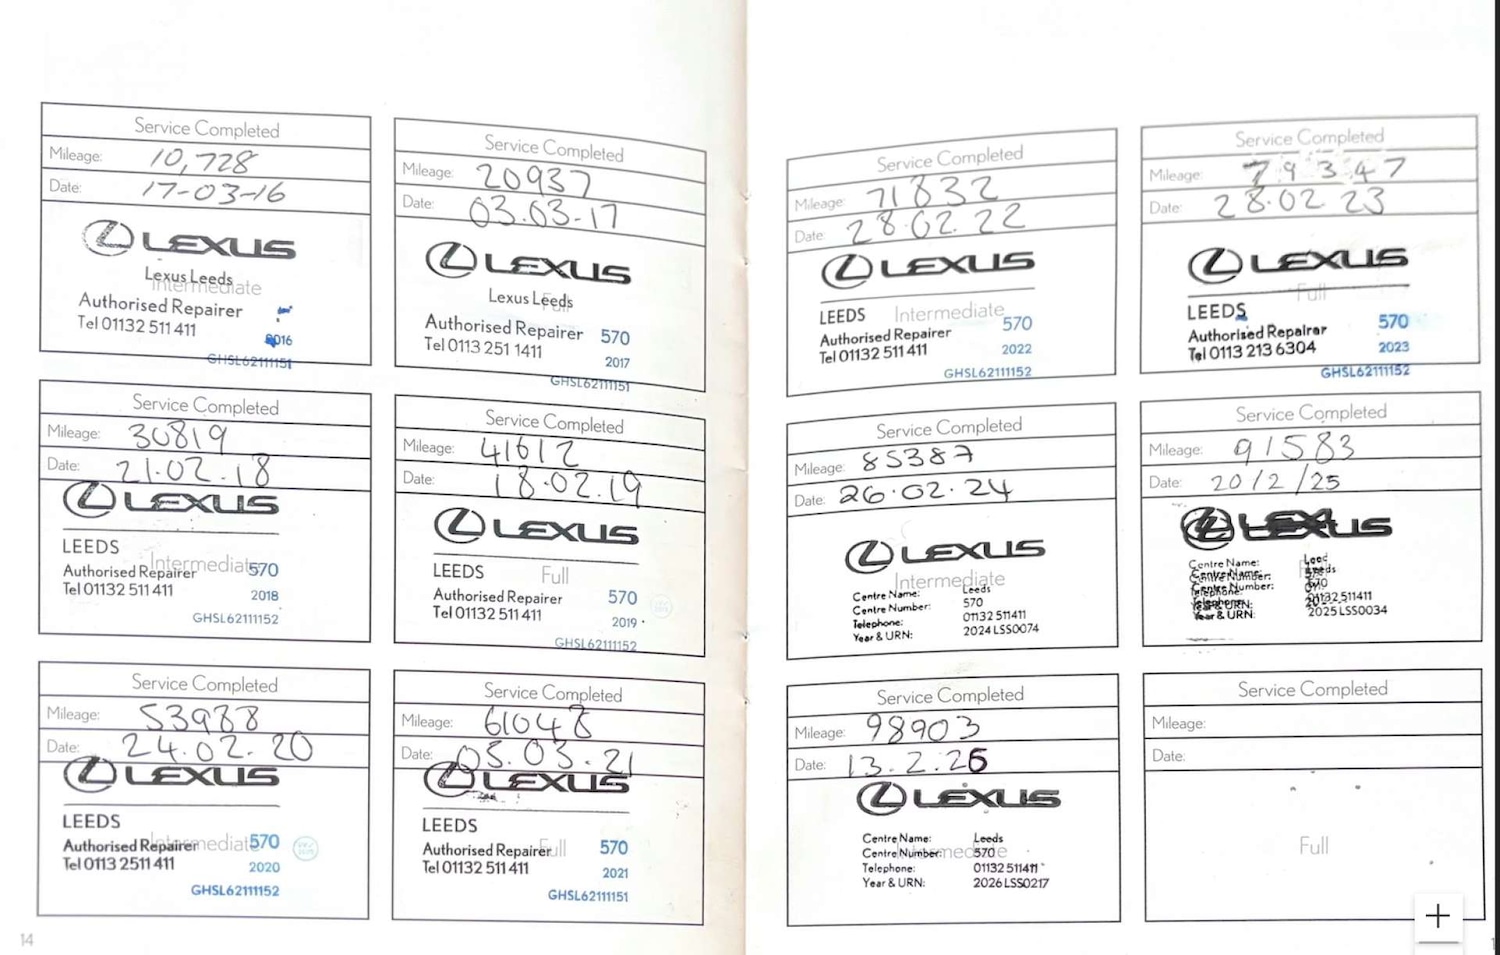 Service Completed
Mileage: 10,728
Date: 17-03-16
LEXUS
Lexus Leeds
Intermediate
Authorised Repairer
Tel 01132 511 411
2016
GHSL62111151
Service Completed
Mileage: 20937
Date: 03.03-17
LEXUS
Lexus Leeds
Full
Authorised Repairer 570
Tel 0113 251 1411
2017
GHSL62111151
Service Completed
Mileage: 30819
Date: 21.02.18
LEXUS
LEEDS
Intermediate
Authorised Repairer 570
Tel 01132 511 411
2018
GHSL62111152
Service Completed
Mileage: 41612
Date: 18.02.19
LEXUS
LEEDS Full
Authorised Repairer 570
Tel 01132 511 411
2019
GHSL62111152
Service Completed
Mileage: 53988
Date: 24.02.20
LEXUS
LEEDS
Intermediate
Authorised Repairer 570
Tel 0113 2511 411
2020
GHSL62111152
Service Completed
Mileage: 61048
Date: 05.03.21
LEXUS
LEEDS
Full
Authorised Repairer 570
Tel 01132 511 411
2021
GHSL62111151
14
Service Completed
Mileage: 71832
Date: 28.02.22
LEXUS
LEEDS Intermediate
Authorised Repairer 570
Tel 01132 511 411
2022
GHSL62111152
Service Completed
Mileage: 79347
Date: 28.02 23
LEXUS
Full
LEEDS
Authorised Repairer 570
Tel 0113 213 6304
2023
GHSL62111152
Service Completed
Mileage: 85387
Date: 26.02.24
LEXUS
Intermediate
Centre Name: Leeds
Centre Number: 570
Telephone: 01132 511411
Year & URN: 2024 LSS0074
Service Completed
Mileage: 91583
Date: 20/2/25
LEXUS
Centre Name: Leeds
Centre Number: 570
Telephone: 01132 511411
Year & URN: 2025 LSS0034
Service Completed
Mileage: 98903
Date: 13.2.26
LEXUS
Centre Name: Leeds
Intermediate
Centre Number: 570
Telephone: 01132 511411
Year & URN: 2026 LSS0217
Service Completed
Mileage:
Date:
Full